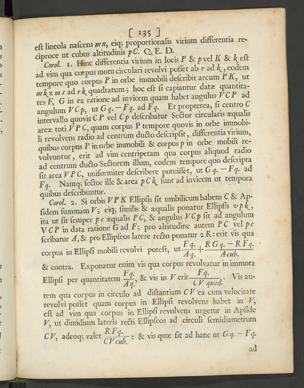 [ 135 ]
est lineola nascens mn, eiq; proportionalis virium differentia re-
ciproce ut cubus altitudinis pC. Q. E. D.
Corol. 1. Hinc differentia virium in locis P & p vel K & k est
ad vim qua corpus motu circulari revolvi posset ab r ad k, eodem
tempore quo corpus P in orbe immobili describit arcum PK, ut
mk x ms ad rk quadratum; hoc est si capiantur datæ quantita-
tes F, G in ea ratione ad invicem quam habet angulus VCP ad
angulum VCp, ut Gq. - Fq. ad Fq. Et propterea, si centro C
intervallo quovis CP vel Cp describatur Sector circularis æqualis
areæ toti VPC, quam corpus P tempore quovis in orbe immobi-
li revolvens radio ad centrum ducto descripsit, differentia virium,
quibus corpus P in orbe immobili & corpus p in orbe mobili re-
volvuntur, erit ad vim centripetam qua corpus aliquod radio
ad centrum ducto Sectorem illum, eodem tempore quo descripta
sit area VPC, uniformiter describere potuisset, ut Gq. - Fq. ad
Fq. Namq; sector ille & area pCk sunt ad invicem ut tempora
quibus describuntur.
Corol. 2. Si orbis VPK Ellipsis sit umbilicum habens C & Ap-
sidem summam V; eiq; similis & æqualis ponatur Ellipsis vpk,
ita ut sit semper pc æqualis PC, & angulus VCp sit ad angulum
VCP in data ratione G ad F; pro altitudine autem PC vel pc
scribatur A, & pro Ellipseos latere recto ponatur 2 R: erit vis qua
corpus in Ellipsi mobili revolvi potest, ut Fq./Aq. + RGq. - RFq./A cub.
& contra. Exponatur enim vis qua corpus revolvatur in immota
Ellipsi per quantitatem Fq./Aq., & vis in V erit Fq./CV quad. Vis au-
tem qua corpus in circulo ad distantiam CV ea cum velocitate
revolvi posset quam corpus in Ellipsi revolvens habet in V,
est ad vim qua corpus in Ellipsi revolvens urgetur in Apside
V, ut dimidium lateris recti Ellipseos ad circuli semidiametrum
CV, adeoq; valet RFq./CV cub. : & vis quæ sit ad hanc ut Gq. - Fq.
ad